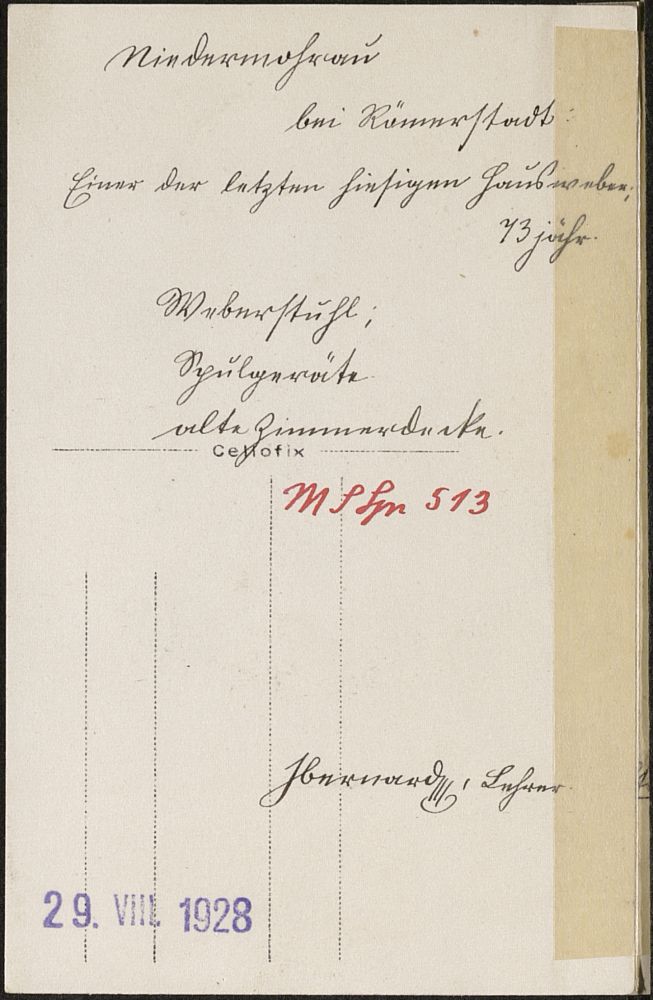 Niedermohrau
bei Römerstadt:
Einer der letzten hiesigen Hausweber;
73 jähr.
Weberstuhl;
Spulgeräte
alte Zimmerdecke.
Cellofix
513
Lehrer
29. VIII. 1928